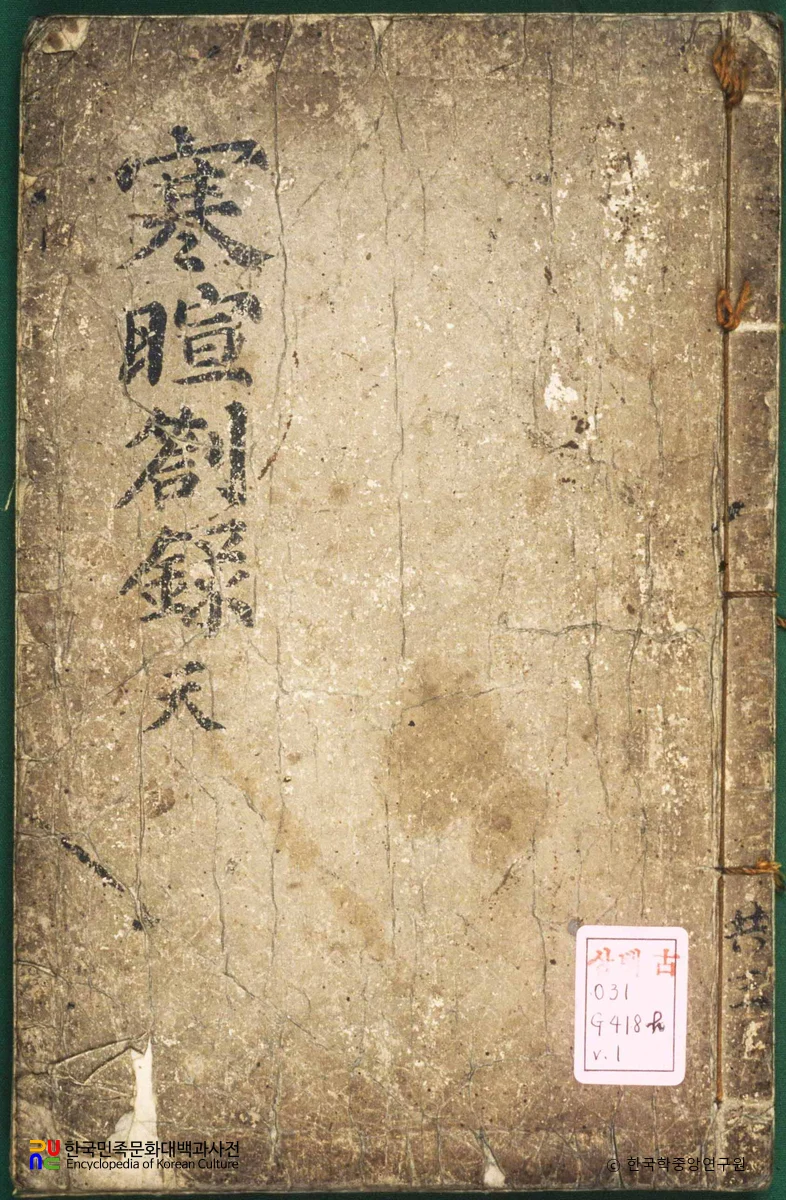 寒暄劄錄 天
共
상백 古
031
G418h
v.1
한국민족문화대백과사전
Encyclopedia of Korean Culture
© 한국학중앙연구원